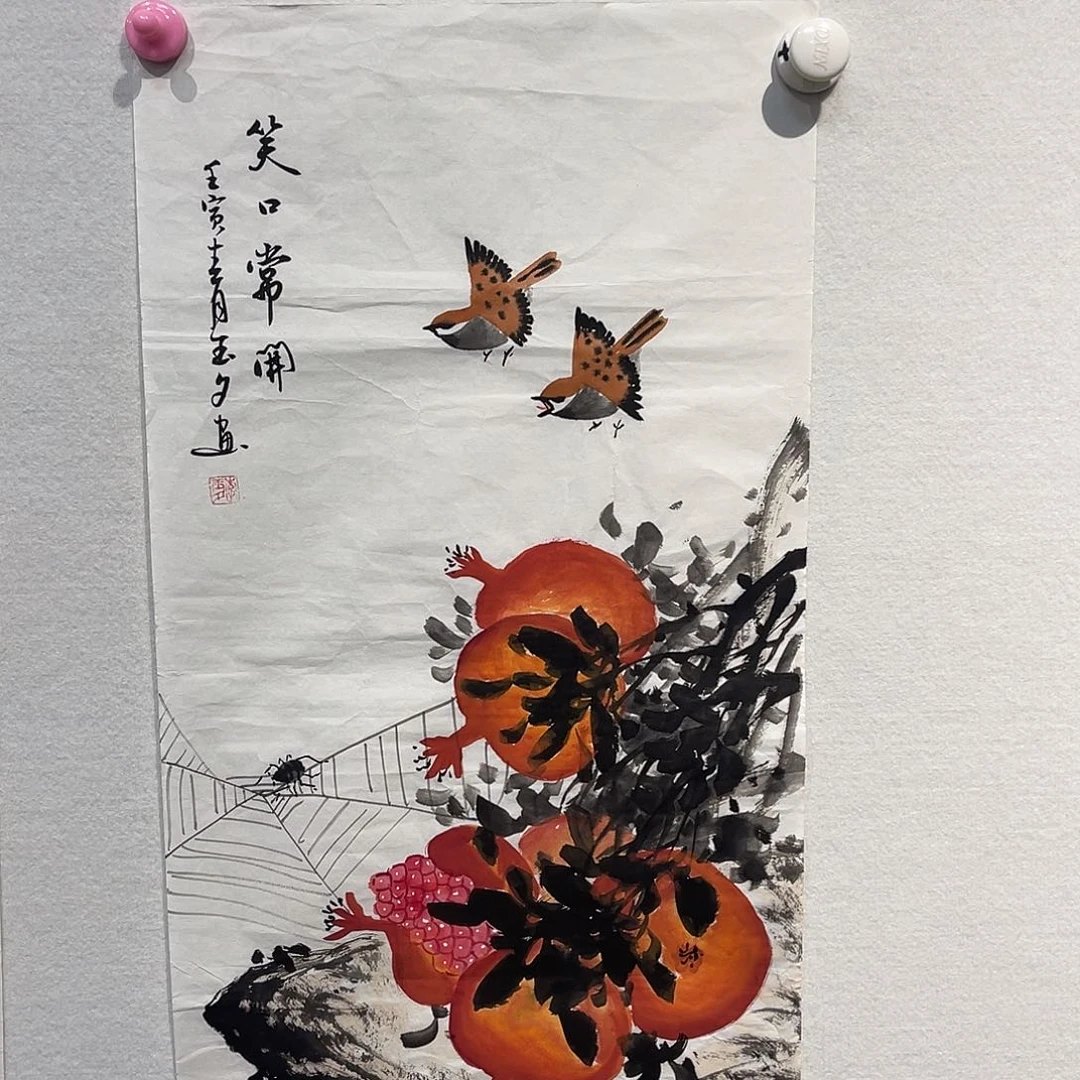 笑口常開
壬寅十二月玉夕画